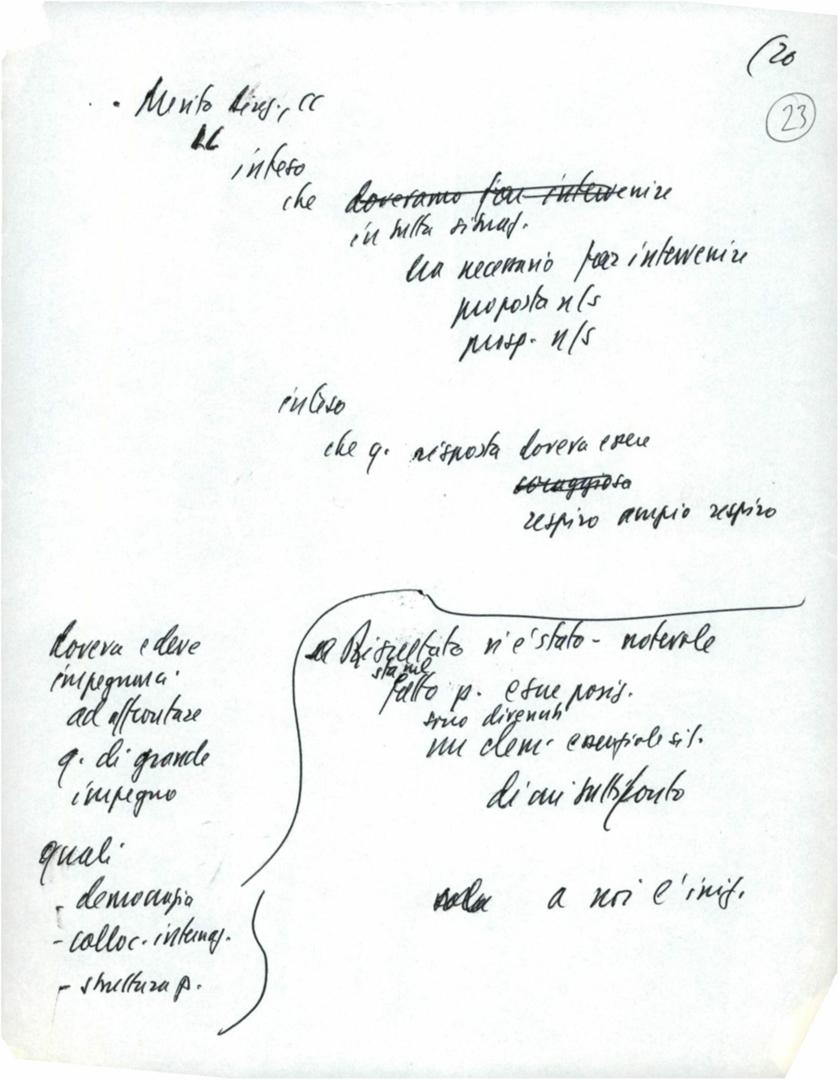 (20
23
· Merito Direz., CC
inteso
che dovevamo far intervenire
in tutta situaz.
era necessario far intervenire
proposta n/s
prosp. n/s
inteso
che q. risposta doveva essere
coraggiosa
respiro ampio respiro
doveva e deve
impegnarsi
ad affrontare
q. di grande
impegno
quali
- democrazia
- colloc. internaz.
- struttura p.
Risultato vi è stato - notevole
fatto p. e sue posiz.
sono divenuti
un elem. essenziale sit.
di cui tutti conto
a noi l'iniz.